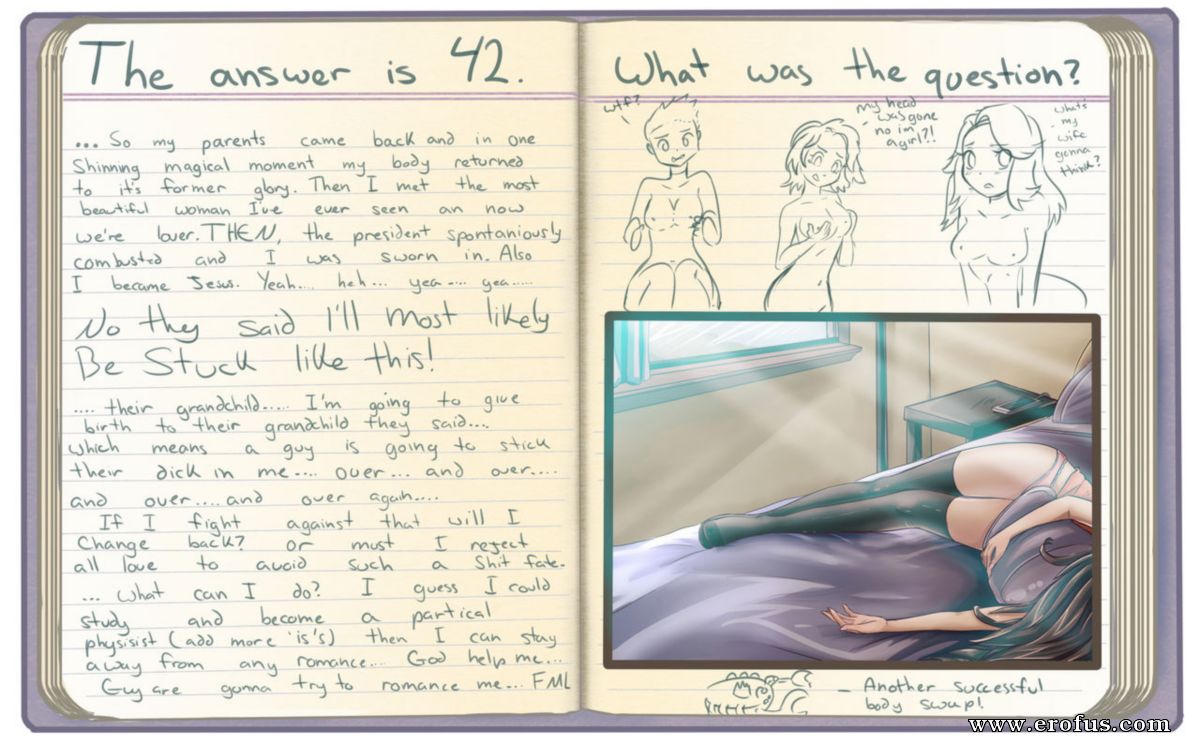 The answer is 42.
... So my parents came back and in one
Shinning magical moment my body returned
to it's former glory. Then I met the most
beautiful woman I've ever seen an now
we're lover. THEN, the president spontaniously
combusted and I was sworn in. Also
I became Jesus. Yeah.... heh... yea.... yea.....
No they said I'll most likely
Be Stuck like this!
.... their grandchild..... I'm going to give
birth to their grandchild they said....
which means a guy is going to stick
their dick in me.... over.... and over....
and over.... and over again....
If I fight against that will I
Change back? or must I reject
all love to avoid such a Shit fate.
... what can I do? I guess I could
study and become a partical
physisist (add more 'is's) then I can stay
away from any romance.... God help me...
Guy are gonna try to romance me... FML
What was the question?
wtf?
my head
was gone
no im
a girl?!
what's
my
wife
gonna
think?
- Another successful
body swap!
www.erofus.com